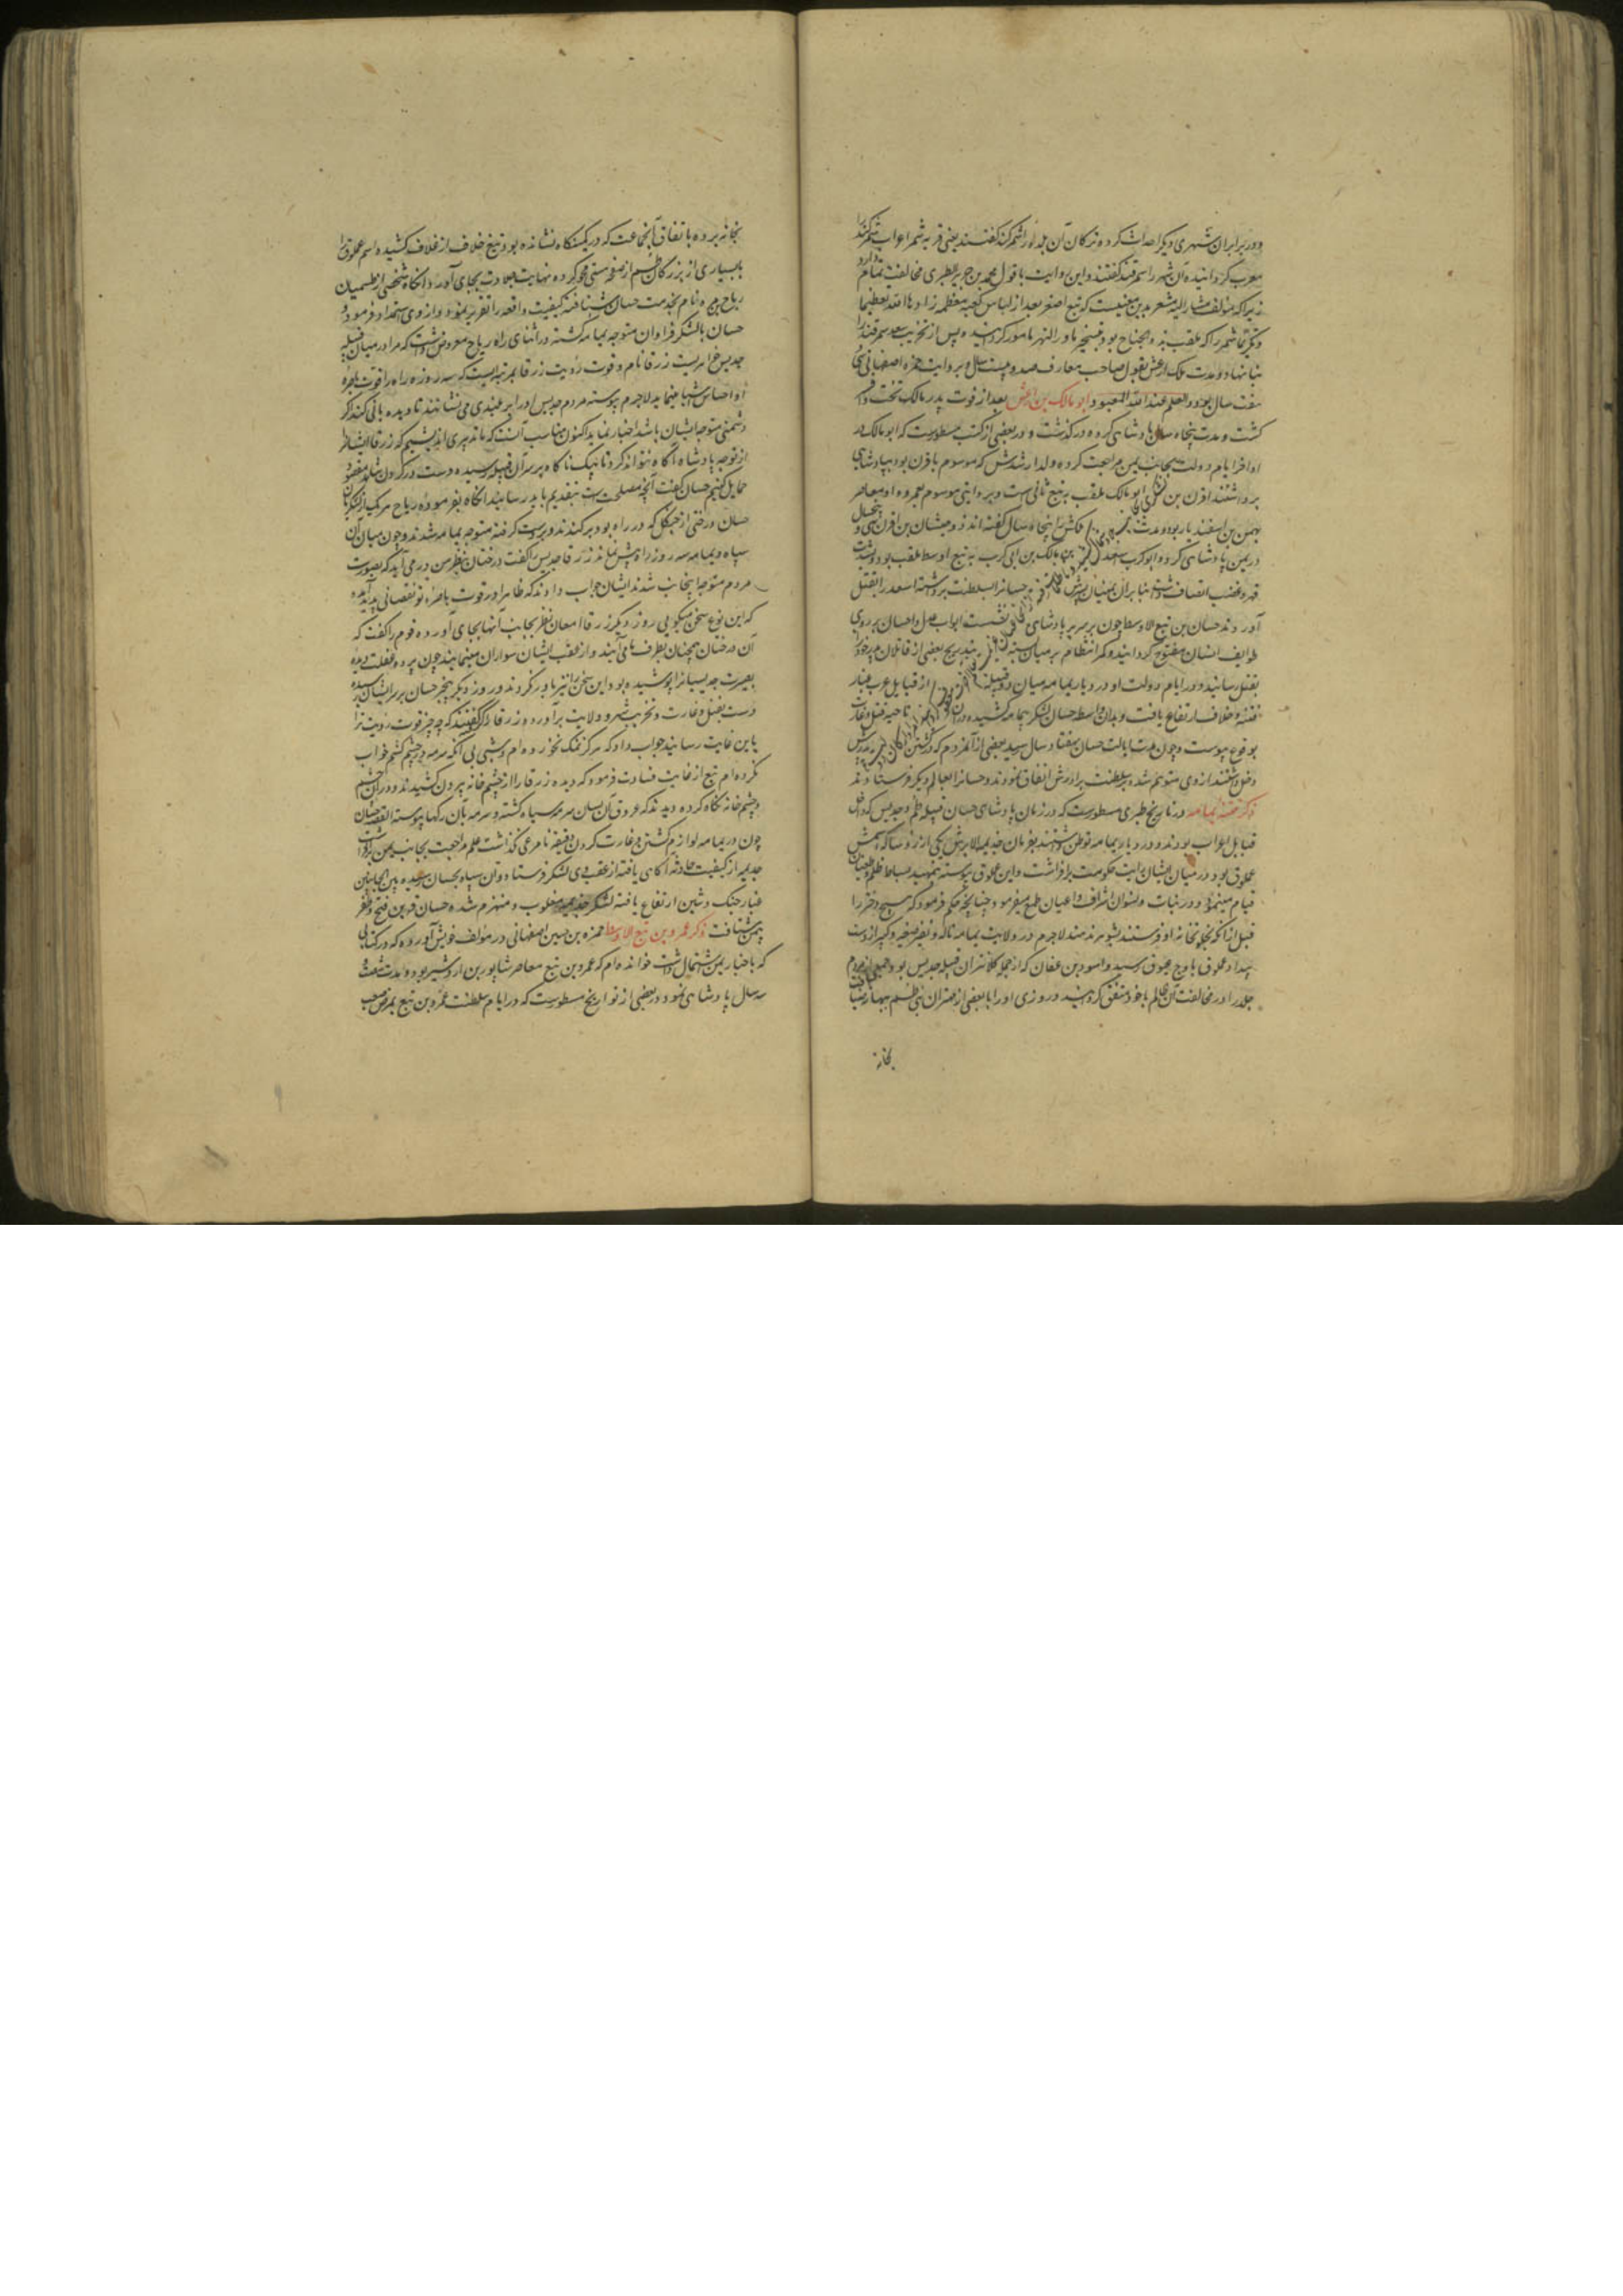 و در برابر آن شهری دیگر احداث کرده ترکان آن بلده را شمرکند گفتند یعنی قریه شمر اعراب شمرکند را
معرب گردانیده آن شهر را سمرقند گفتند و این روایت با قول محمد بن جریر الطبری مخالفت تمام دارد
زیرا که مؤلف مشار الیه مشعر بدین معنیست که تبع اصغر بعد از لباس کعبه معظمه زادها الله تعظیما
و تکریما شمر را که ملقب بذو الجناح بود بتسخیر ماوراالنهر مامور گردانیده و پس از تخریب سغد سمرقند را
بنا نهاد و مدت ملک ارعش بقول صاحب معارف صد و بیست سال و بروایت حمزه اصفهانی سی
هفت سال بود و العلم عند الله المعبود ابو مالک بن ارعش بعد از فوت پدر مالک تخت و
گشت و مدت پنجاه سال پادشاهی کرده درگذشت و در بعضی از کتب مسطورست که ابو مالک در
اواخر ایام دولت بجانب یمن مراجعت کرده ولد ارشدش که موسوم باقرن بود بپادشاهی
برداشتند اقرن بن ابو مالک ملقب به تبع ثانی است و بروایتی موسوم بعمرو و او معاصر
بهمن بن اسفندیار بود و مدت ملکش را پنجاه سال گفته اند
در یمن پادشاهی کرد و ابو کرب سعد بن مالک بن ابی کرب به تبع اوسط ملقب بود و
قهر و غضب اتصاف داشت بنا بر آن یمنیان حسانرا بسلطنت برداشته اسعد را بقتل
آوردند حسان بن تبع الاوسط چون بر سریر پادشاهی نشست ابواب عدل و احسان بر روی
طوایف انسان مفتوح گردانید و کمر انتقام بر میان بسته بتدریج بعضی از قاتلان پدر خود را
بقتل رسانید و در ایام دولت او در دیار یمامه میان دو قبیله از قبایل عرب غبار
فتنه و خلاف ارتفاع یافت و بدان واسطه حسان لشکر بیمامه کشیده در آن ناحیه قتل و غارت
بوقوع پیوست و چون مدت ایالت حسان بهفتاد سال رسید بعضی از آنمردم که در کشتن پدرش
دخل داشتند از وی متوهم شده بر سلطنت برادرش اتفاق نمودند و حسانرا بعالم دیگر فرستادند
ذکر فتنه یمامه در تاریخ طبری مسطورست که در زمان پادشاهی حسان قبیله طسم و جدیس که داخل
قبایل اعراب بودند و در دیار یمامه توطن داشتند بفرمان جذیمه الابرش یکی از روسا که اسمش
عملوق بود در میان ایشان رایت حکومت برافراشت و این عملوق پیوسته بتمهید بساط ظلم و طغیان
قیام مینمود و در بنات و نسوان اشراف و اعیان طمع میفرمود چنانچه حکم فرمود که هیچ دختر را
قبل از آنکه بخانه او فرستند بشوهر ندهند لاجرم در ولایت یمامه ناله و نفیر صغیر و کبیر از دست
بیداد عملوق باوج عیوق رسید و اسود بن عفان که از جمله کلانتران قبیله جدیس بود جمعی از مردم
جلد را در مخالفت آن ظالم با خود متفق گردانید و روزی او را با بعضی از مهتران بنی طسم ببهانه ضیافت
بخانه
بخانه برده باتفاق آنجماعت که در کمینگاه نشانده بود تیغ خلاف از غلاف کشیده اسم عملوق را
با بسیاری از بزرگان طسم از صفحه هستی محو کرده نهایت جلادت بجای آورد و آنگاه شخصی از طسمیان
رباح بن مره نام بخدمت حسان شتافته کیفیت واقعه را تقریر نمود و از وی استمداد فرمود و
حسان با لشکر فراوان متوجه یمامه گشته در اثنای راه ریاح معروض داشت که مرا در میان قبیله
جدیس خواهریست زرقا نام و قوت رؤیت زرقا بمرتبه ایست که سه روزه راه را قوت باصره
او احساس اشیا مینماید لاجرم پیوسته مردم جدیس او را بر بلندی می نشانند تا دیده بانی کند اگر
دشمنی متوجه ایشان باشد اخبار نماید اکنون مناسب آنست که ما تدبیری اندیشیم که زرقا ایشانرا
از توجه پادشاه آگاه نتواند کرد تا نیک ناگاه بر سر آن قبیله رسیده دست در گردن شاهد مقصود
حمایل کنیم حسان گفت آنچه مصلحت است بتقدیم باید رسانید آنگاه بفرموده ریاح هر یک از لشکریان
حسان درختی از جنگل که در راه بود برکندند و بر دست گرفته متوجه یمامه شدند و چون میان آن
سپاه و یمامه سه روزه راه پیش نماند زرقا جدیس را گفت درختان بنظر من در می آید که بصورت
مردم متوجه اینجانب شدند ایشان جواب دادند که ظاهرا در قوت باصره تو نقصانی پدید آمده
که این نوع سخن میگویی روز دیگر زرقا امعان نظر بجانب آنها بجای آورده قوم را گفت که
آن درختان همچنان بطرف ما می آیند و از عقب ایشان سواران مینمایند چون پرده غفلت دیده
بصیرت جدیسیانرا پوشیده بود این سخن را نیز باور نکردند و روز دیگر بیخبر حسان بر سر ایشان رسیده
دست بقتل و غارت و تخریب شهر و ولایت برآورده و زرقا را گفتند که چه چیز قوت رؤیت ترا
باین غایت رسانید جواب داد که هرگز نمک نخورده ام و شبی بی آنکه سرمه در چشم کشم خواب
نکرده ام تبع از غایت قساوت فرمود که دیده زرقا را از چشم خانه بیرون کشیدند و در آن چشم
و چشم خانه نگاه کرده دیدند که عروق آن بسان سرمه سیاه گشته و سرمه بآن رگها پیوسته القصه حسان
چون در یمامه لوازم کشتن و غارت کردن دقیقه نامرعی نگذاشت علم مراجعت بجانب یمن برافراشت
جذیمه از کیفیت حادثه آگاهی یافته از عقب وی لشکر فرستاد و آن سپاه بحسان رسیده بین الجانبین
غبار جنگ و شین ارتفاع یافته لشکر جذیمه مغلوب و منهزم شده حسان قرین فتح و ظفر
بیمن شتافت ذکر عمرو بن تبع الاوسط حمزه بن حسین اصفهانی در مؤلف خویش آورده که در کتابی
که باخبار یمن اشتمال داشت خوانده ام که عمرو بن تبع معاصر شاپور بن اردشیر بود و مدت شصت
سه سال پادشاهی نمود و در بعضی از تواریخ مسطورست که در ایام سلطنت عمرو بن تبع بمرض صعب